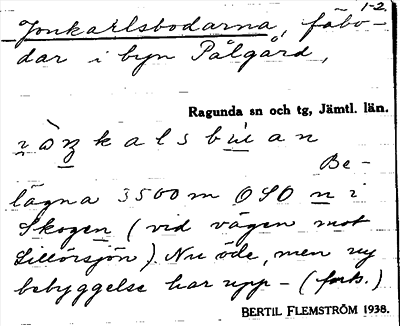 1-2.
Jonkarlsbodarna, fäbo-
dar i byn Pålgård,
Ragunda sn och tg, Jämtl. län.
kalsbuan
Be-
lägna 3500 m OSO n i
Skogen (vid vägen mot
Lillörsjön). Nu öde, men ny
bebyggelse har upp- (forts.)
BERTIL FLEMSTRÖM 1938.